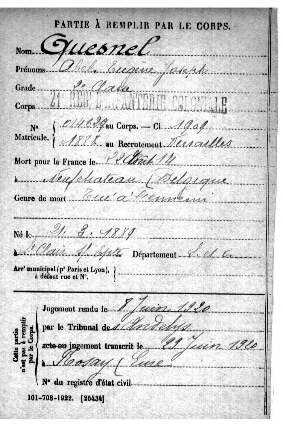 PARTIE À REMPLIR PAR LE CORPS.
Nom Quesnel
Prénoms Abel Eugène Joseph
Grade 2e Classe
Corps 21 REG. D'INFANTERIE COLONIALE
N° Matricule. au Corps. — Cl. 1909
1896 au Recrutement Versailles
Mort pour la France le 22 Août 14
à Neufchateau (Belgique
Genre de mort Tué à l'ennemi
Né le 21. 3. 1889
à St Clair s/ Epte Département S. et O.
Arrt municipal (pr Paris et Lyon), à défaut rue et N°.
Cette partie n'est pas à remplir par le Corps.
Jugement rendu le 8 Juin 1920
par le Tribunal de Andelys
acte ou jugement transcrit le 29 Juin 1920
à Rosay (Eure
N° du registre d'état civil
101-708-1922. [26434]